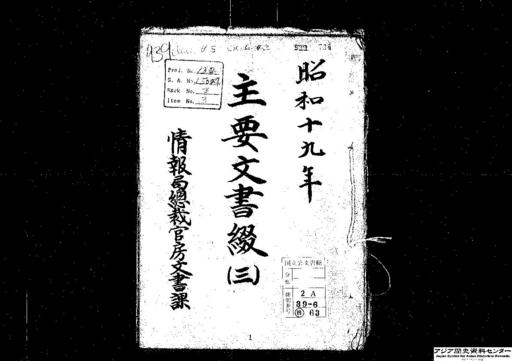 昭和十九年
主要文書綴
(三)
情報局總裁官房文書課
Proj. No.
S. A. No.
Sack No.
Item No.
国立公文書館
分類
2 A
39-6
63
1
アジア歴史資料センター
Japan Center for Asian Historical Records